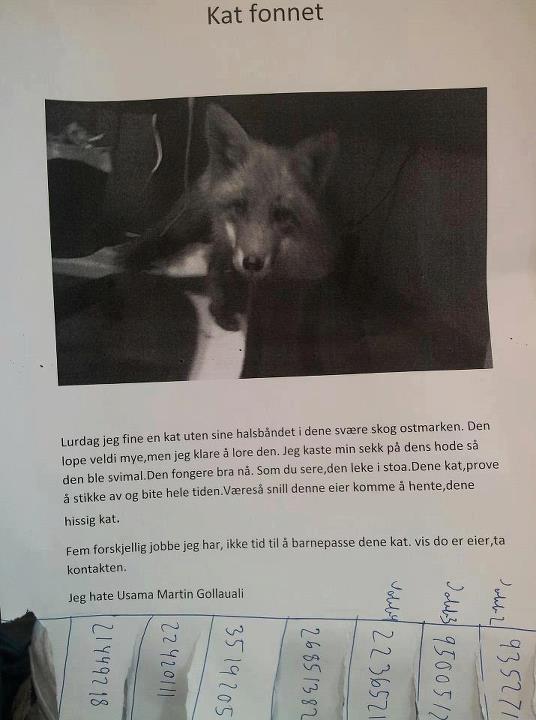 Kat fonnet
Lurdag jeg fine en kat uten sine halsbåndet i dene svære skog ostmarken. Den
lope veldi mye,men jeg klare å lore den. Jeg kaste min sekk på dens hode så
den ble svimal.Den fongere bra nå. Som du sere,den leke i stoa.Dene kat,prove
å stikke av og bite hele tiden.Væreså snill denne eier komme å hente,dene
hissig kat.
Fem forskjellig jobbe jeg har, ikke tid til å barnepasse dene kat. vis do er eier,ta
kontakten.
Jeg hate Usama Martin Gollauali
21499218
22420111
3519205
26851382
2236521
9500512
935271